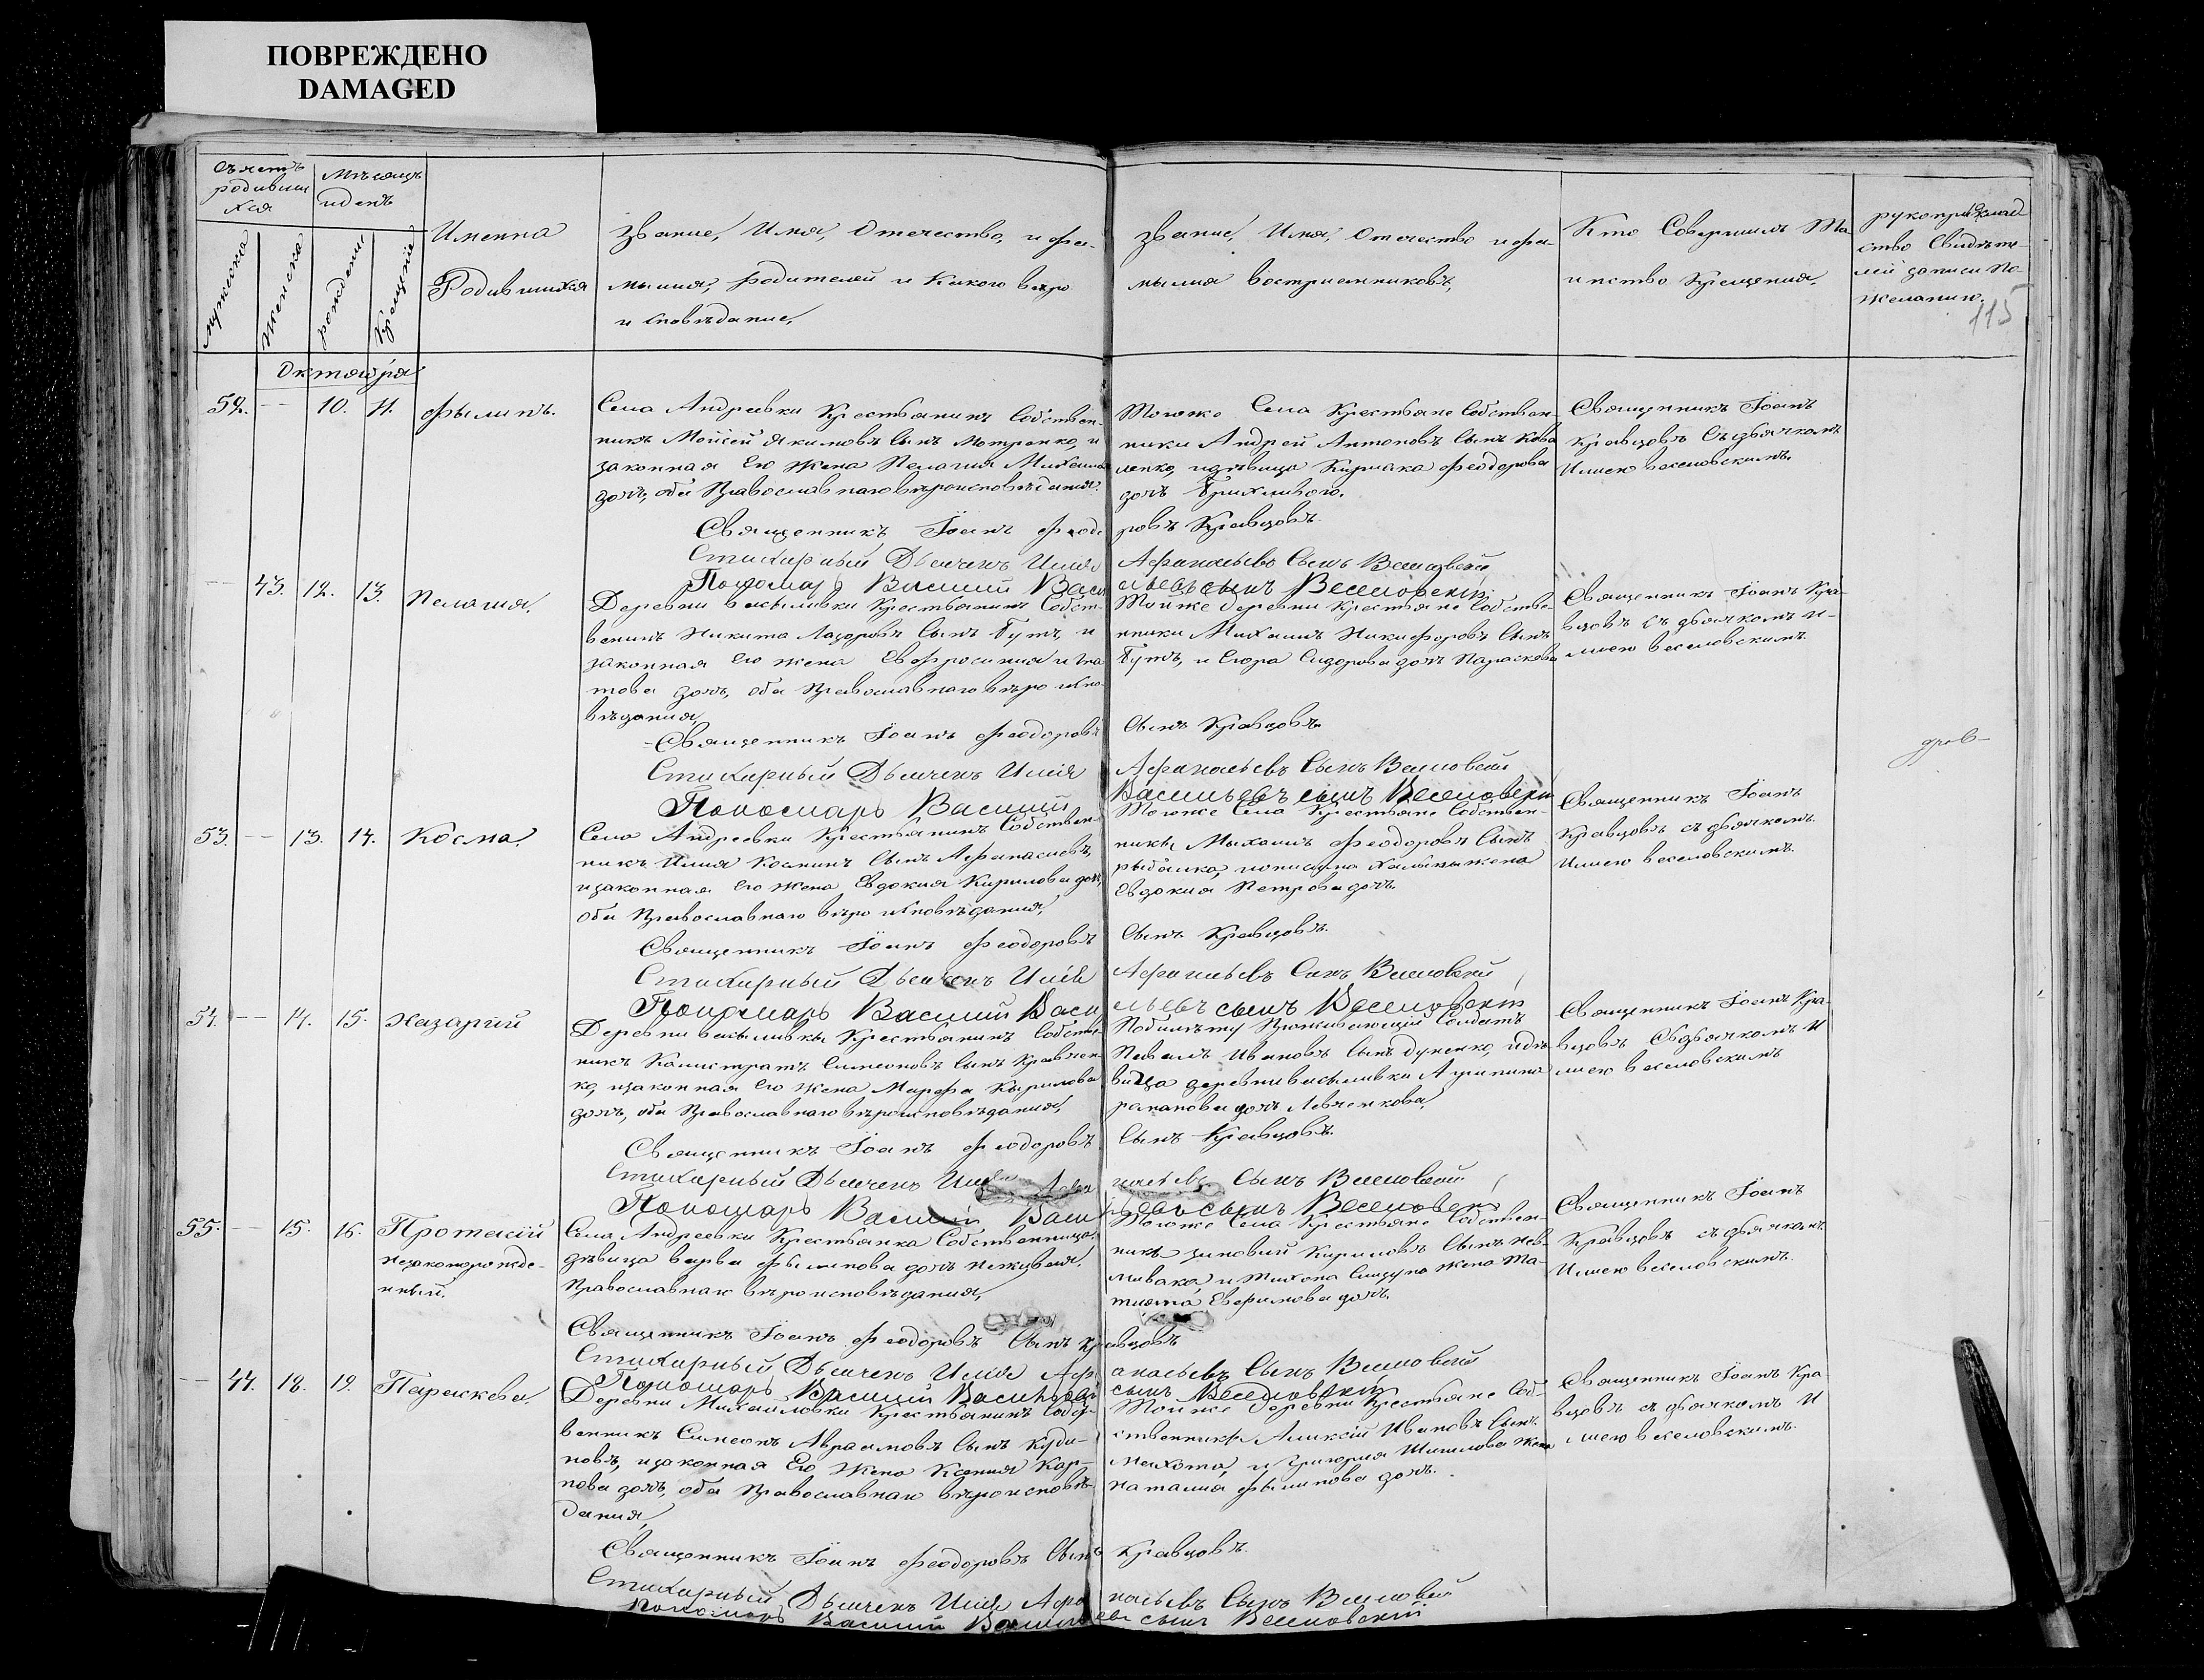 ПОВРЕЖДЕНО
DAMAGED
Счетъ
родивши
хся
Мѣсяцъ
и день
мужеска
женска
рожденіе
Крещеніе
Имена
Родившихся
Званіе, Имя, Отечество, и фа-
милія, родителей и Какого вѣро
исповѣданіе,
Званіе, Имя, Отечество и фа-
милия восприемниковъ,
Кто Совершилъ Та
инство Крещения,
рукоприклад
ство Свидѣте
лей записи по
желанию.
115
Октября
52. -- 10. 11. Филипъ.
Села Андреевки Крестьянинъ Собствен-
никъ Мойсей Якимовъ Сынъ Мотренко, и
законная Его Жена Пелагия Михаила
дочь, оба Православнаго вѣроисповѣдания.
Тогоже Села Крестьяне Собствен-
ники Андрей Антоновъ Сынъ Кова
ленко, и дѣвица Феодорова
дочь
Священникъ Іоанъ
Кравцовъ Съ дьячкомъ
Илиею Веселовскимъ.
Священникъ Іоанъ Феодо ровъ Кравцовъ.
Стихарный Дьячекъ Илія Афанасьевъ Сынъ Веселовскій
Пономарь Василий Васильевъ сынъ Веселовскій
-- 43. 12. 13. Пелагия.
Деревни Васильевки Крестьянинъ Собст-
венникъ Никита Лазоровъ Сынъ Бутъ, и
законная его жена Евфросиния Игна
това дочь, оба Православнаго вѣро испо-
вѣдания,
Тойже деревни Крестьяне Собстве-
нники Михаилъ Никифоровъ Сынъ
Бутъ, и Егора Сидорова дочь Параскева
Священникъ Іоанъ Кра-
вцовъ съ дьячкомъ И-
лиею Веселовскимъ.
Священникъ Іоанъ Феодоровъ Сынъ Кравцовъ.
Стихарный Дьячекъ Илія Афанасьевъ Сынъ Веселовский
Пономарь Василий Васильевъ сынъ Веселовскій
53. -- 13. 14. Косма.
Села Андреевки Крестьянинъ Собствен-
никъ Илия Космичъ Сынъ Афанасиевъ,
и законная его жена Евдокия Кирилова дочь,
оба Православнаго вѣро исповѣдания,
Тогоже Села Крестьяне Собствен-
ники, Михаилъ Феодоровъ Сынъ
рыбалка, жена
Евдокия Петрова дочь.
Священникъ Іоанъ
Кравцовъ съ дьячкомъ.
Илиею Веселовскимъ.
Священникъ Іоанъ Феодоровъ Сынъ Кравцовъ.
Стихарный Дьячекъ Илія Афанасьевъ Сынъ Веселовский
Пономарь Василий Васильевъ сынъ Веселовскій
54. -- 14. 15. Назарий
Деревни Васильевки, Крестьянинъ Собстве
никъ Калистратъ Симеоновъ Сынъ Кравчен-
ко, и законная его жена Марфа Кирилова
дочь, оба Православнаго вѣроисповѣдания,
Побилѣту Проживающій Солдатъ
Павелъ Ивановъ Сынъ Дуненко, и дѣ-
вица деревни Васильевки Агрипина
дочь Левченкова,
Священникъ Іоанъ Кра-
вцовъ Съ дьячкомъ И
лиею Веселовскимъ
Священникъ Іоанъ Феодоровъ Сынъ Кравцовъ.
Стихарный Дьячекъ Илія Афанасьевъ Сынъ Веселовский
Пономарь Василий Васильевъ сынъ Веселовскій
55. -- 15. 16. Протасій
незаконорожде-
нный.
Села Андреевки Крестьянка Собственница,
дѣвица Варва Филипова дочь
Православнаго вѣроисповѣдания,
Тогоже Села Крестьяне Собствен-
ники Зиновий Кириловъ Сынъ
и Тихона жена Та-
тияна Евфимова дочь.
Священникъ Іоанъ
Кравцовъ съ дьячкомъ
Илиею Веселовскимъ.
Священникъ Іоанъ Феодоровъ Сынъ Кравцовъ
Стихарный Дьячекъ Илія Афанасьевъ Сынъ Веселовский
Пономарь Василий Васильевъ сынъ Веселовскій
-- 44. 18. 19. Параскева.
Деревни Михайловки Крестьянинъ Собст-
венникъ Симеонъ Авраамовъ Сынъ Куди-
новъ, и законная Его жена Ксения Кар-
пова дочь, оба Православнаго вѣроисповѣ-
дания,
Тойже деревни Крестьяне Соб-
ственники Аликсій Ивановъ Сынъ
и Григория жена
Наталия Филипова дочь.
Священникъ Іоанъ Кра
вцовъ съ дьячкомъ И
лиею Веселовскимъ.
Священникъ Іоанъ Феодоровъ Сынъ Кравцовъ.
Стихарный Дьячекъ Илія Афанасьевъ Сынъ Веселовский
Пономарь Василий Васильевъ сынъ Веселовскій